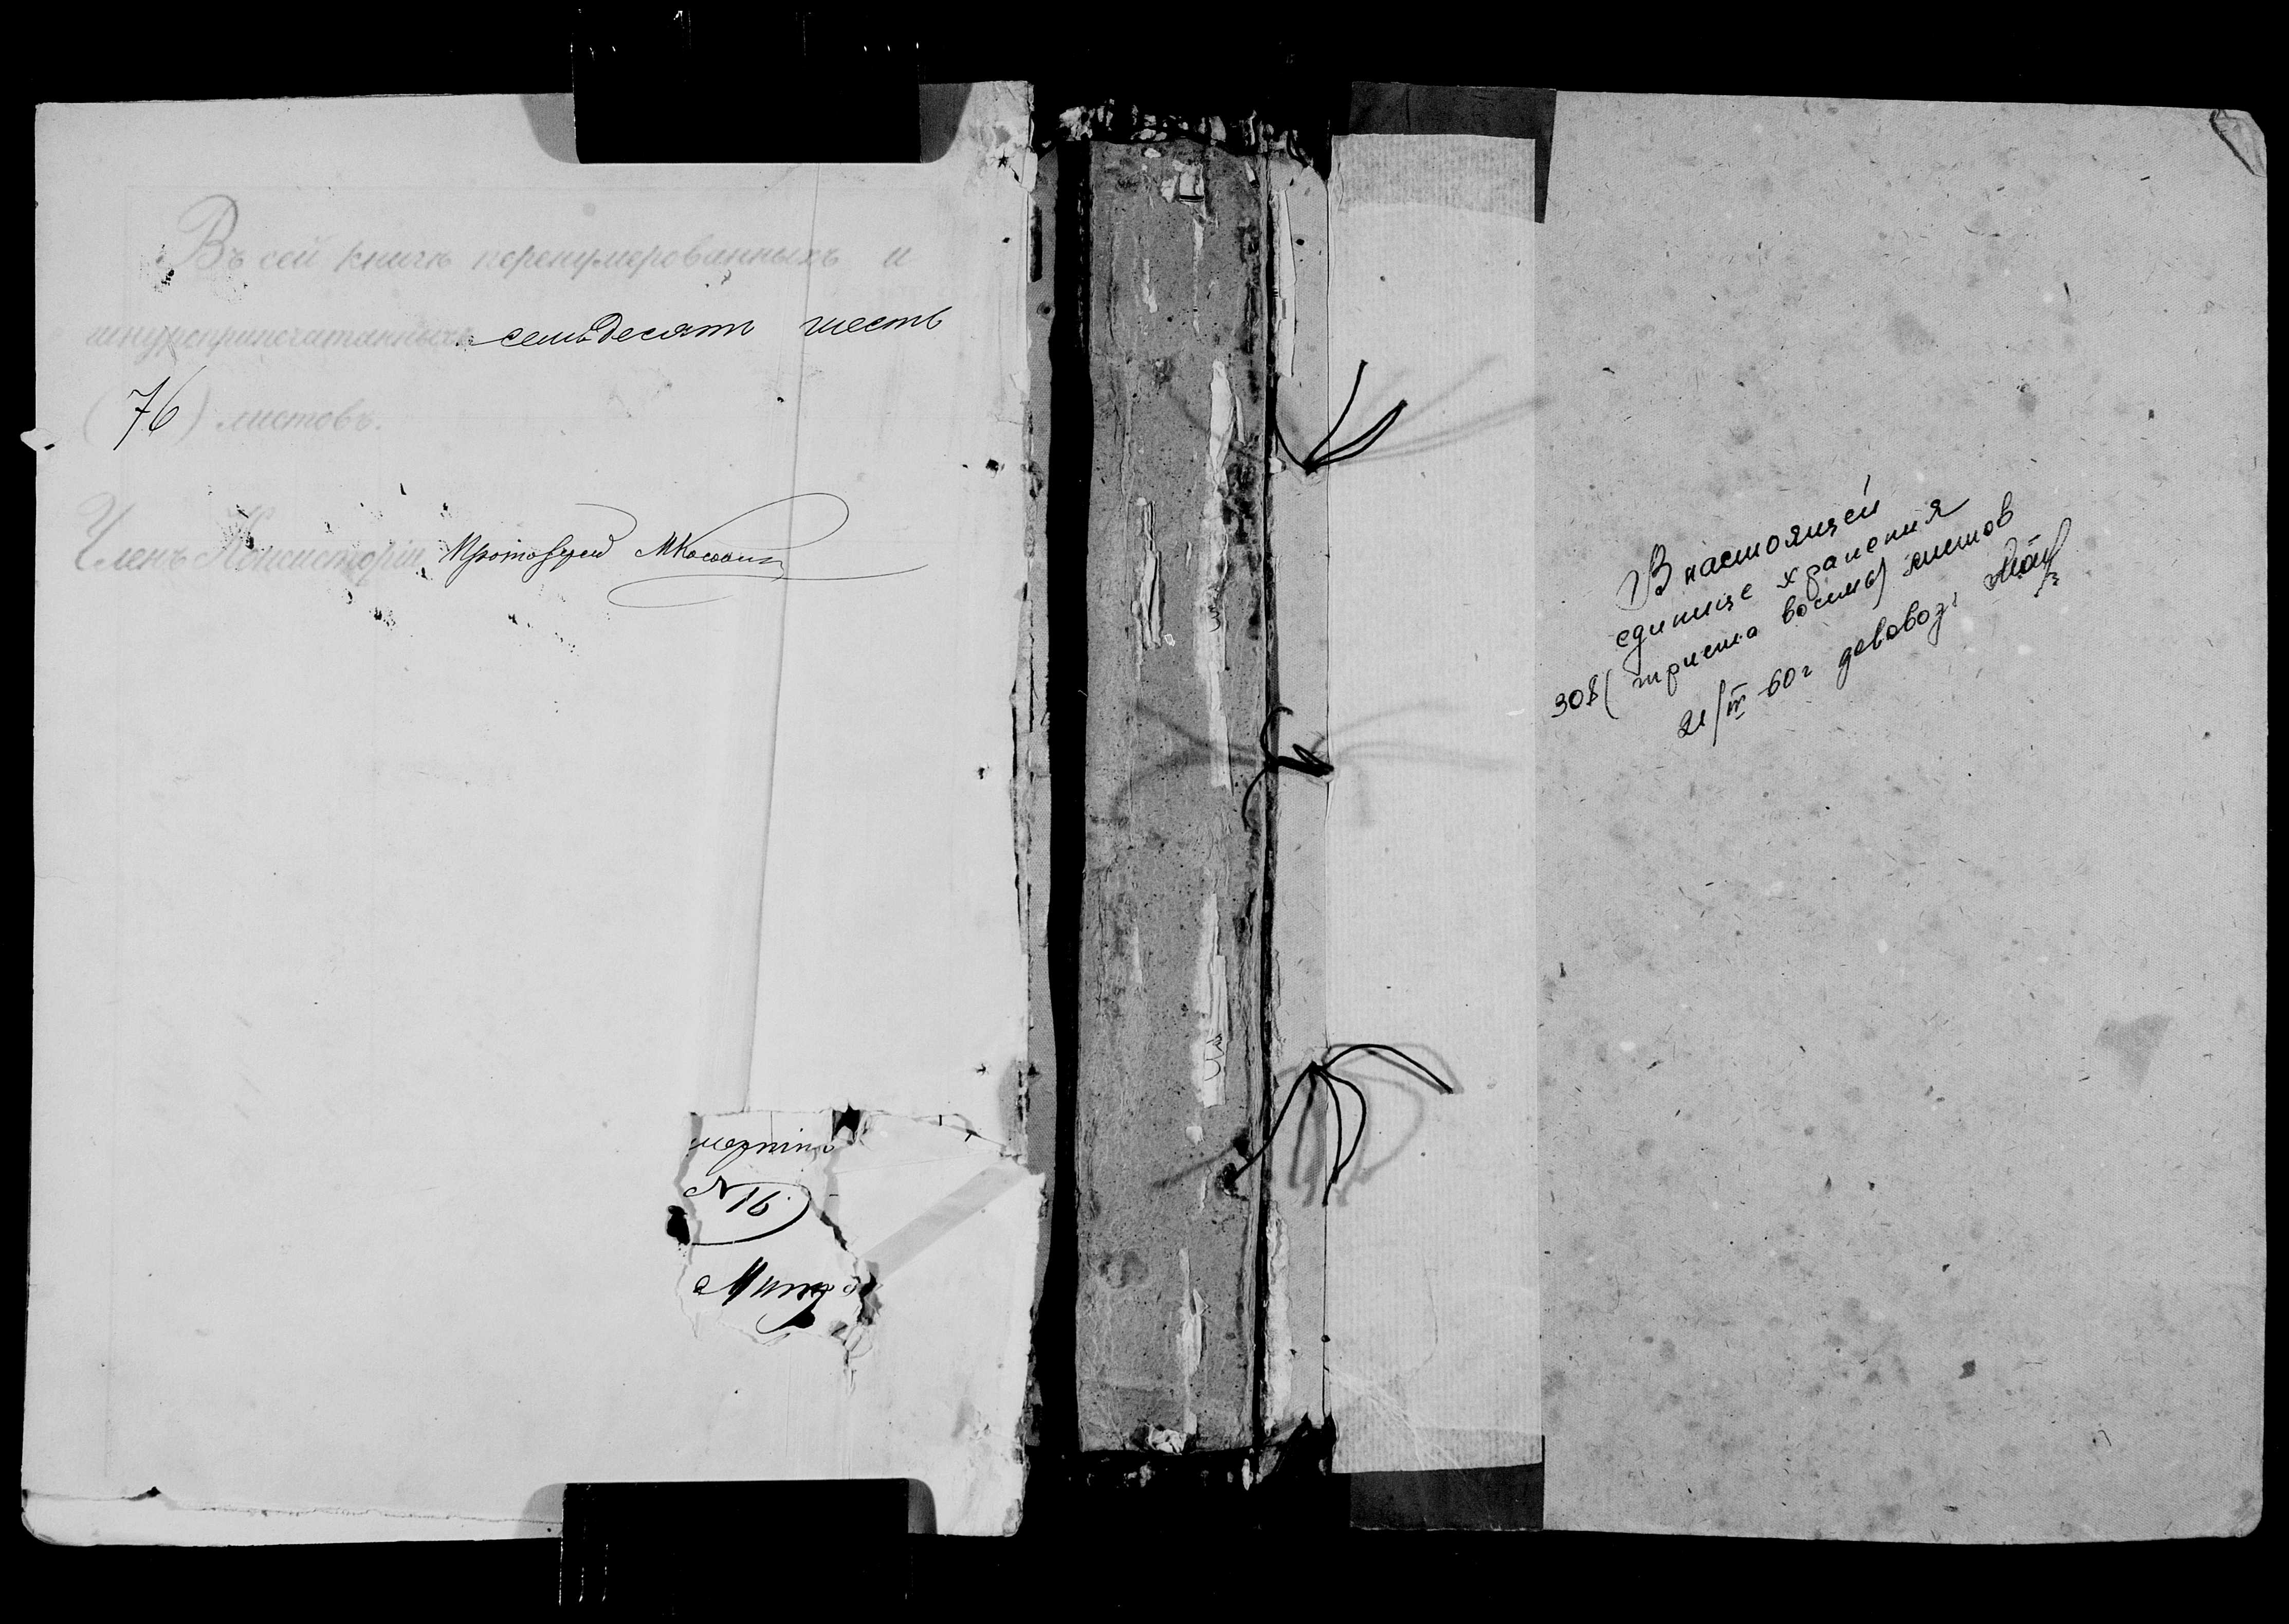 Въ сей книгѣ перенумерованныхъ и
шнуроприпечатанныхъ семьдесятъ шесть
(76) листовъ.
Членъ Консисторіи Протоіерей
№ 16
В настоящей
единице хранения
308 (триста восемь) листов
21/IV 60 г деловод.